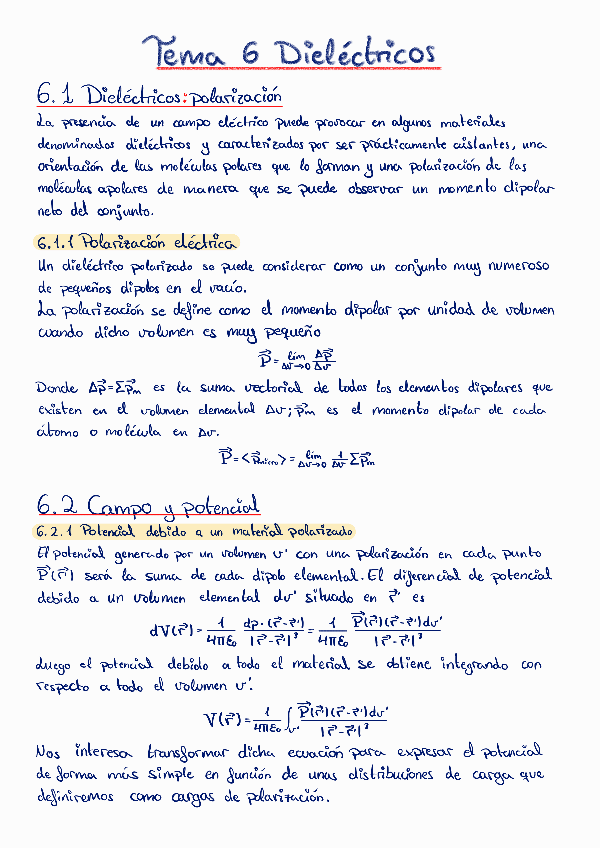 Tema 6 Dieléctricos
6.1 Dieléctricos: polarización
La presencia de un campo eléctrico puede provocar en algunos materiales
denominados dieléctricos y caracterizados por ser prácticamente aislantes, una
orientación de las moléculas polares que lo forman y una polarización de las
moléculas apolares de manera que se puede observar un momento dipolar
neto del conjunto.
6.1.1 Polarización eléctrica
Un dieléctrico polarizado se puede considerar como un conjunto muy numeroso
de pequeños dipolos en el vacío.
La polarización se define como el momento dipolar por unidad de volumen
cuando dicho volumen es muy pequeño
P⃗ = lim Δv→0 Δp⃗/Δv
Donde Δp⃗=Σp⃗m es la suma vectorial de todos los elementos dipolares que
existen en el volumen elemental Δv; p⃗m es el momento dipolar de cada
átomo o molécula en Δv.
P⃗ = <p⃗micro> = lim Δv→0 1/Δv Σp⃗m
6.2 Campo y potencial
6.2.1 Potencial debido a un material polarizado
El potencial generado por un volumen v' con una polarización en cada punto
P⃗(r⃗') será la suma de cada dipolo elemental. El diferencial de potencial
debido a un volumen elemental dv' situado en r⃗' es
dV(r⃗) = 1/4πε₀ dp·(r⃗-r⃗')/|r⃗-r⃗'|³ = 1/4πε₀ P⃗(r⃗')(r⃗-r⃗')dv'/|r⃗-r⃗'|³
Luego el potencial debido a todo el material se obtiene integrando con
respecto a todo el volumen v'.
V(r⃗) = 1/4πε₀ ∫v' P⃗(r⃗')(r⃗-r⃗')dv'/|r⃗-r⃗'|³
Nos interesa transformar dicha ecuación para expresar el potencial
de forma más simple en función de unas distribuciones de carga que
definiremos como cargas de polarización.